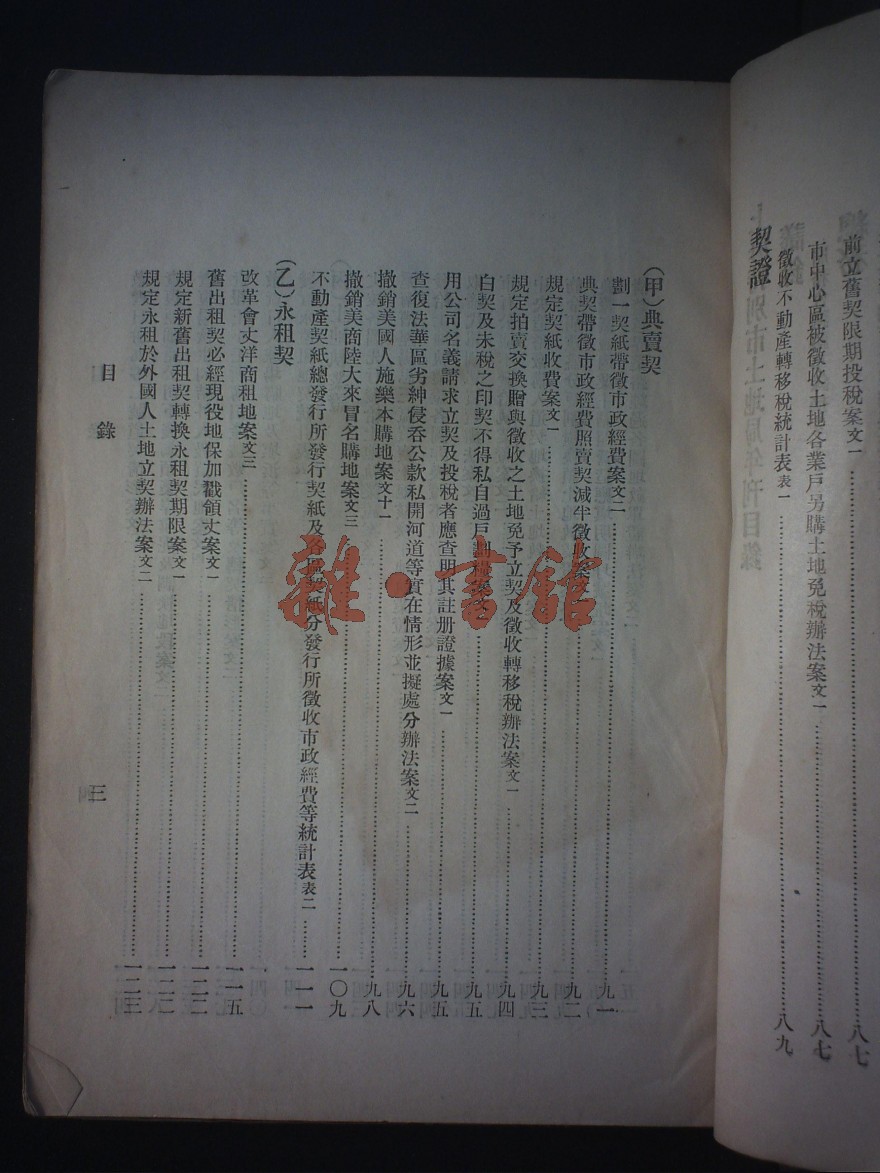 前立舊契限期投稅案文一……八七
市中心區被徵收土地各業戶另購土地免稅辦法案文一……八七
徵收不動產轉移稅統計表表一……八九
契證
(甲)典賣契
劃一契紙帶徵市政經費案文二……九一
典契帶徵市政經費照賣契減半徵收案……九二
規定契紙收費案文一……九三
規定拍賣交換贈與徵收之土地免予立契及徵收轉移稅辦法案文一……九四
白契及未稅之印契不得私自過戶……九五
用公司名義請求立契及投稅者應查明其註册證據案文一……九五
查復法華區劣紳侵吞公款私開河道等實在情形並擬處分辦法案文二……九六
撤銷美國人施樂本購地案文十一……九八
撤銷美商陸大來冒名購地案文三……一〇九
不動產契紙總發行所發行契紙及各區契紙分發行所徵收市政經費等統計表表二……一一一
(乙)永租契
改革會丈洋商租地案文三……一一五
舊出租契必經現役地保加戳領丈案文一……一二二
規定新舊出租契轉換永租契期限案文一……一二二
規定永租於外國人土地立契辦法案文二……一二三
目錄
三
雜·書館